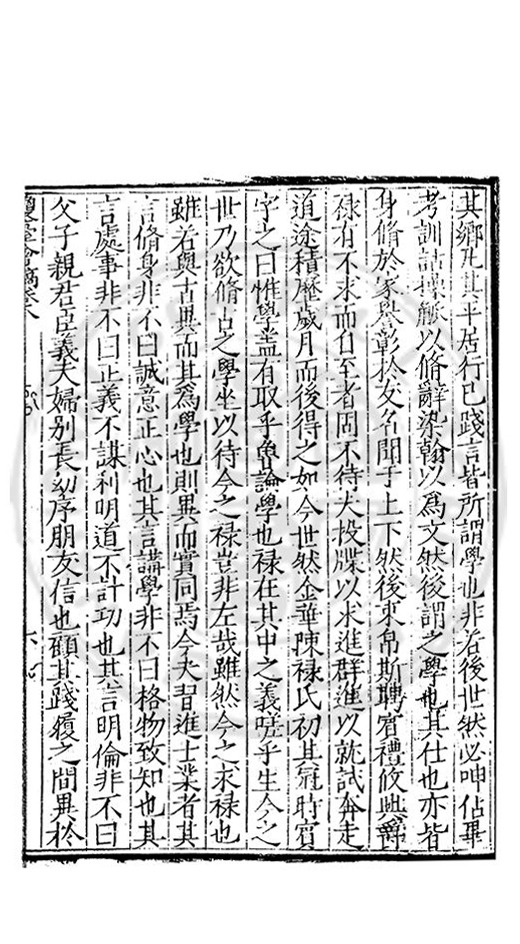 其鄉凡其平居行已踐言皆所謂學也非若後世然必呻佔畢
考訓詁操觚以脩辭染翰以爲文然後謂之學也其仕也亦皆
身脩於家譽彰於友名聞于上下然後束帛斯聘賓禮攸興爵
祿有不求而自至者固不待夫投牒以求進群進以就試奔走
道途積歷歲月而後得之如今世然金華陳祿氏初其冠時賓
字之曰惟學盖有取乎魯論學也祿在其中之義嗟乎生今之
世乃欲脩古之學坐以待今之祿豈非左哉雖然今之求祿也
雖若與古異而其爲學也則異而實同焉今夫習進士業者其
言脩身非不曰誠意正心也其言講學非不曰格物致知也其
言處事非不曰正義不謀利明道不計功也其言明倫非不曰
父子親君臣義夫婦别長幼序朋友信也顧其踐履之間異於
瓊臺會稿卷八